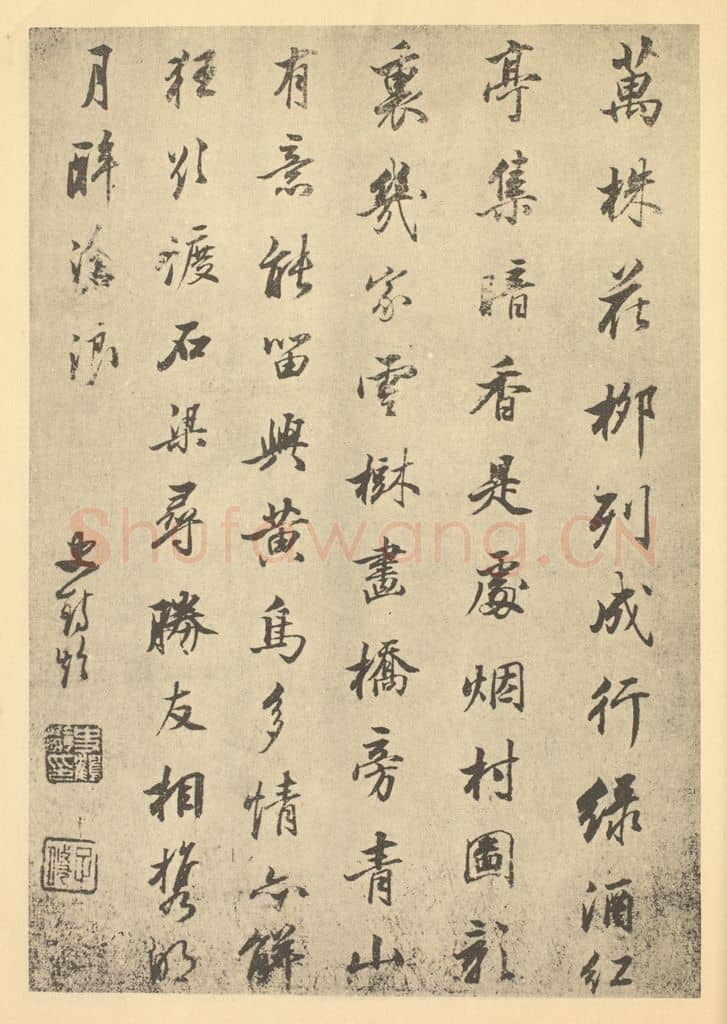 萬株花柳列成行綠酒紅
亭集暗香是處烟村圖影
裏幾家雲樹畫橋旁青山
有意能留興黃鳥多情亦解
狂欲渡石梁尋勝友相携明
月醉滄浪
史鶴齡
史鶴齡印
子修
Shufawang.CN